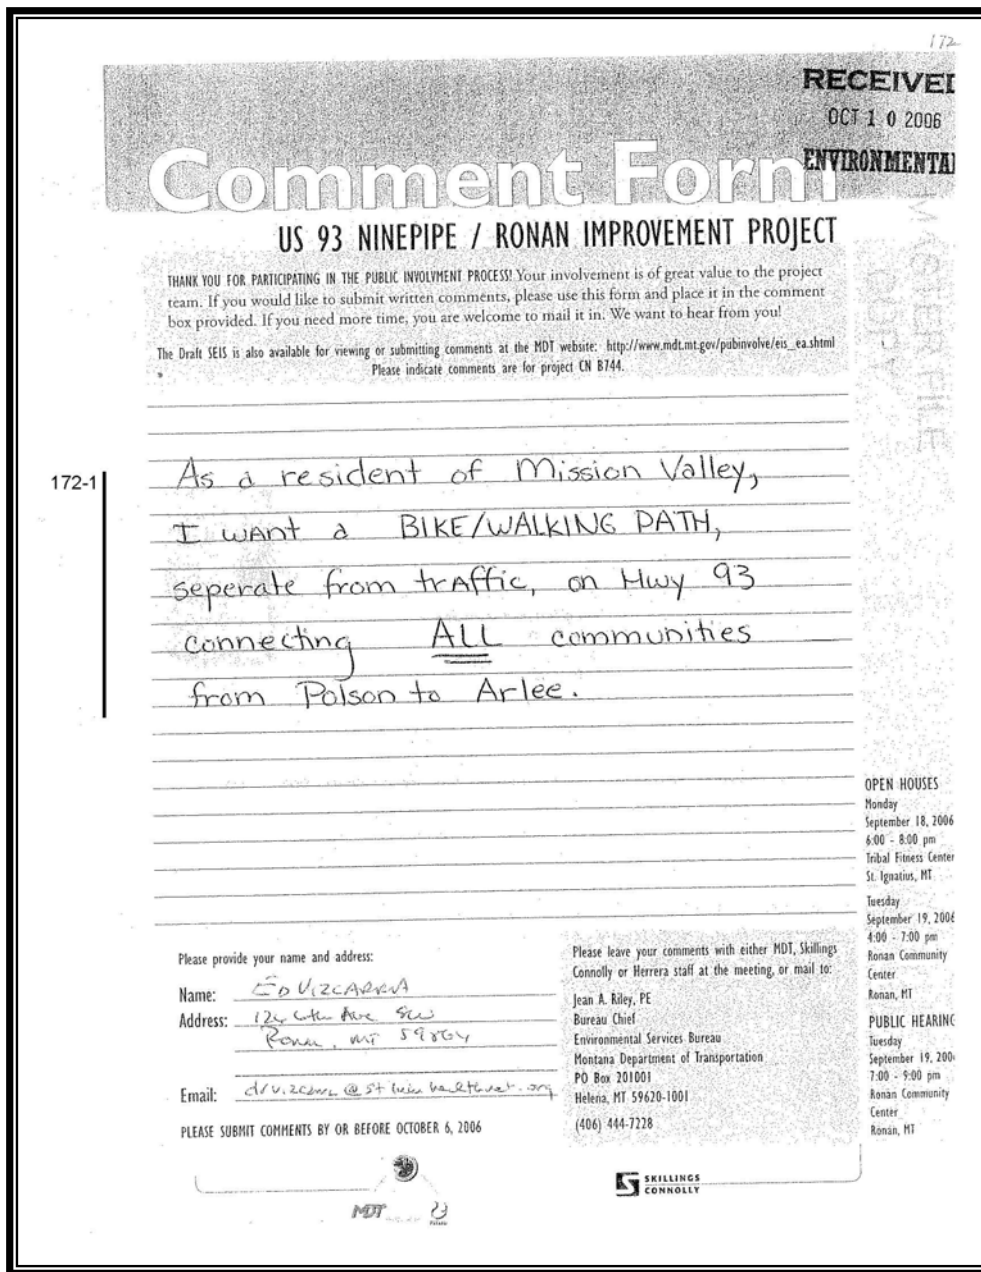 172
RECEIVED
OCT 10 2006
ENVIRONMENTAL
Comment Form
US 93 NINEPIPE / RONAN IMPROVEMENT PROJECT
MASTER FILE
COPY
THANK YOU FOR PARTICIPATING IN THE PUBLIC INVOLVMENT PROCESS! Your involvement is of great value to the project
team. If you would like to submit written comments, please use this form and place it in the comment
box provided. If you need more time, you are welcome to mail it in. We want to hear from you!
The Draft SEIS is also available for viewing or submitting comments at the MDT website: http://www.mdt.mt.gov/pubinvolve/eis_ea.shtml
Please indicate comments are for project CN B744.
172-1
As a resident of Mission Valley,
I want a BIKE/WALKING PATH,
seperate from traffic, on Hwy 93
connecting ALL communities
from Polson to Arlee.
OPEN HOUSES
Monday
September 18, 2006
6:00 - 8:00 pm
Tribal Fitness Center
St. Ignatius, MT
Tuesday
September 19, 2006
4:00 - 7:00 pm
Ronan Community
Center
Ronan, MT
PUBLIC HEARING
Tuesday
September 19, 200
7:00 - 9:00 pm
Ronan Community
Center
Ronan, MT
Please provide your name and address:
Name: ED VIZCARRA
Address: 124 Ave SW
Ronan, MT 59864
Email:
PLEASE SUBMIT COMMENTS BY OR BEFORE OCTOBER 6, 2006
Please leave your comments with either MDT, Skillings
Connolly or Herrera staff at the meeting, or mail to:
Jean A. Riley, PE
Bureau Chief
Environmental Services Bureau
Montana Department of Transportation
PO Box 201001
Helena, MT 59620-1001
(406) 444-7228
MDT
SKILLINGS
CONNOLLY